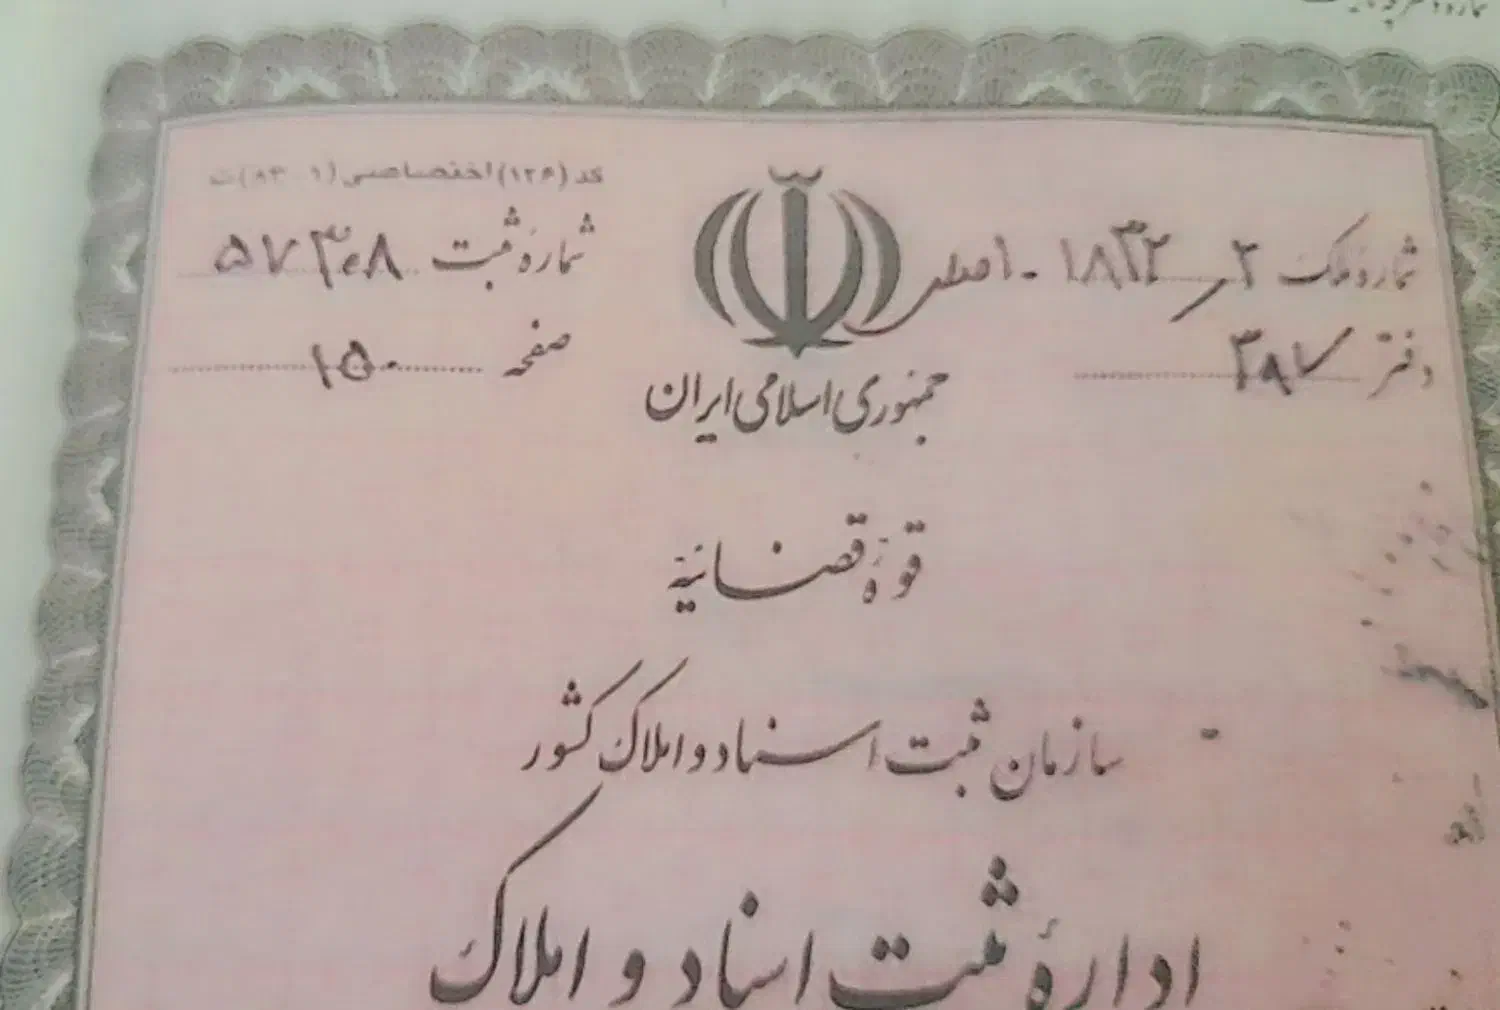 کد (۱۲۶) اختصاصی
شمارهٔ ملک ۲ / ۱۸۳۲ - اصلی
شمارهٔ ثبت ۵۷۳۰۸
دفتر ۳۸۷
صفحه ۱۵۰
جمهوری اسلامی ایران
قوهٔ قضائیه
سازمان ثبت اسناد و املاک کشور
ادارهٔ ثبت اسناد و املاک